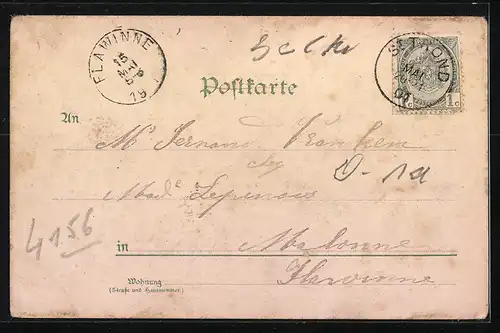 FLAWINNE
15
MAI
19
ST-TROND
MAI
07
1c
Postkarte
An
Mr Fernand Vranken
chez
Made Lepinois
4156
in Malonne
Flawinne
Wohnung
(Straße und Hausnummer)